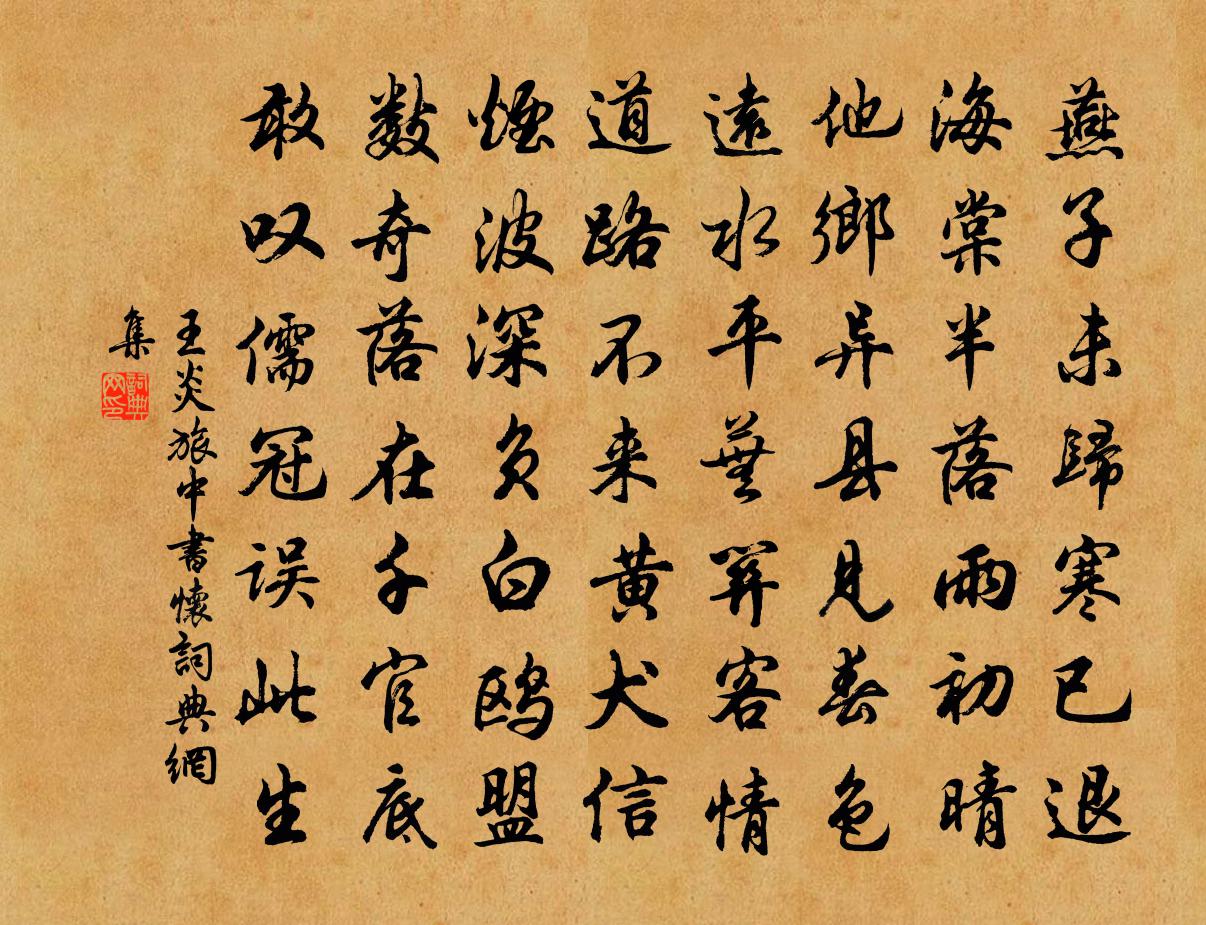 燕子未歸寒已退
海棠半落雨初晴
他鄉异县見春色
遠水平蕪羿客情
道路不来黄犬信
煙波深負白鸥盟
數奇落在千官底
敢叹儒冠误此生
王炎旅中書懷詞典網
集
詞典网印